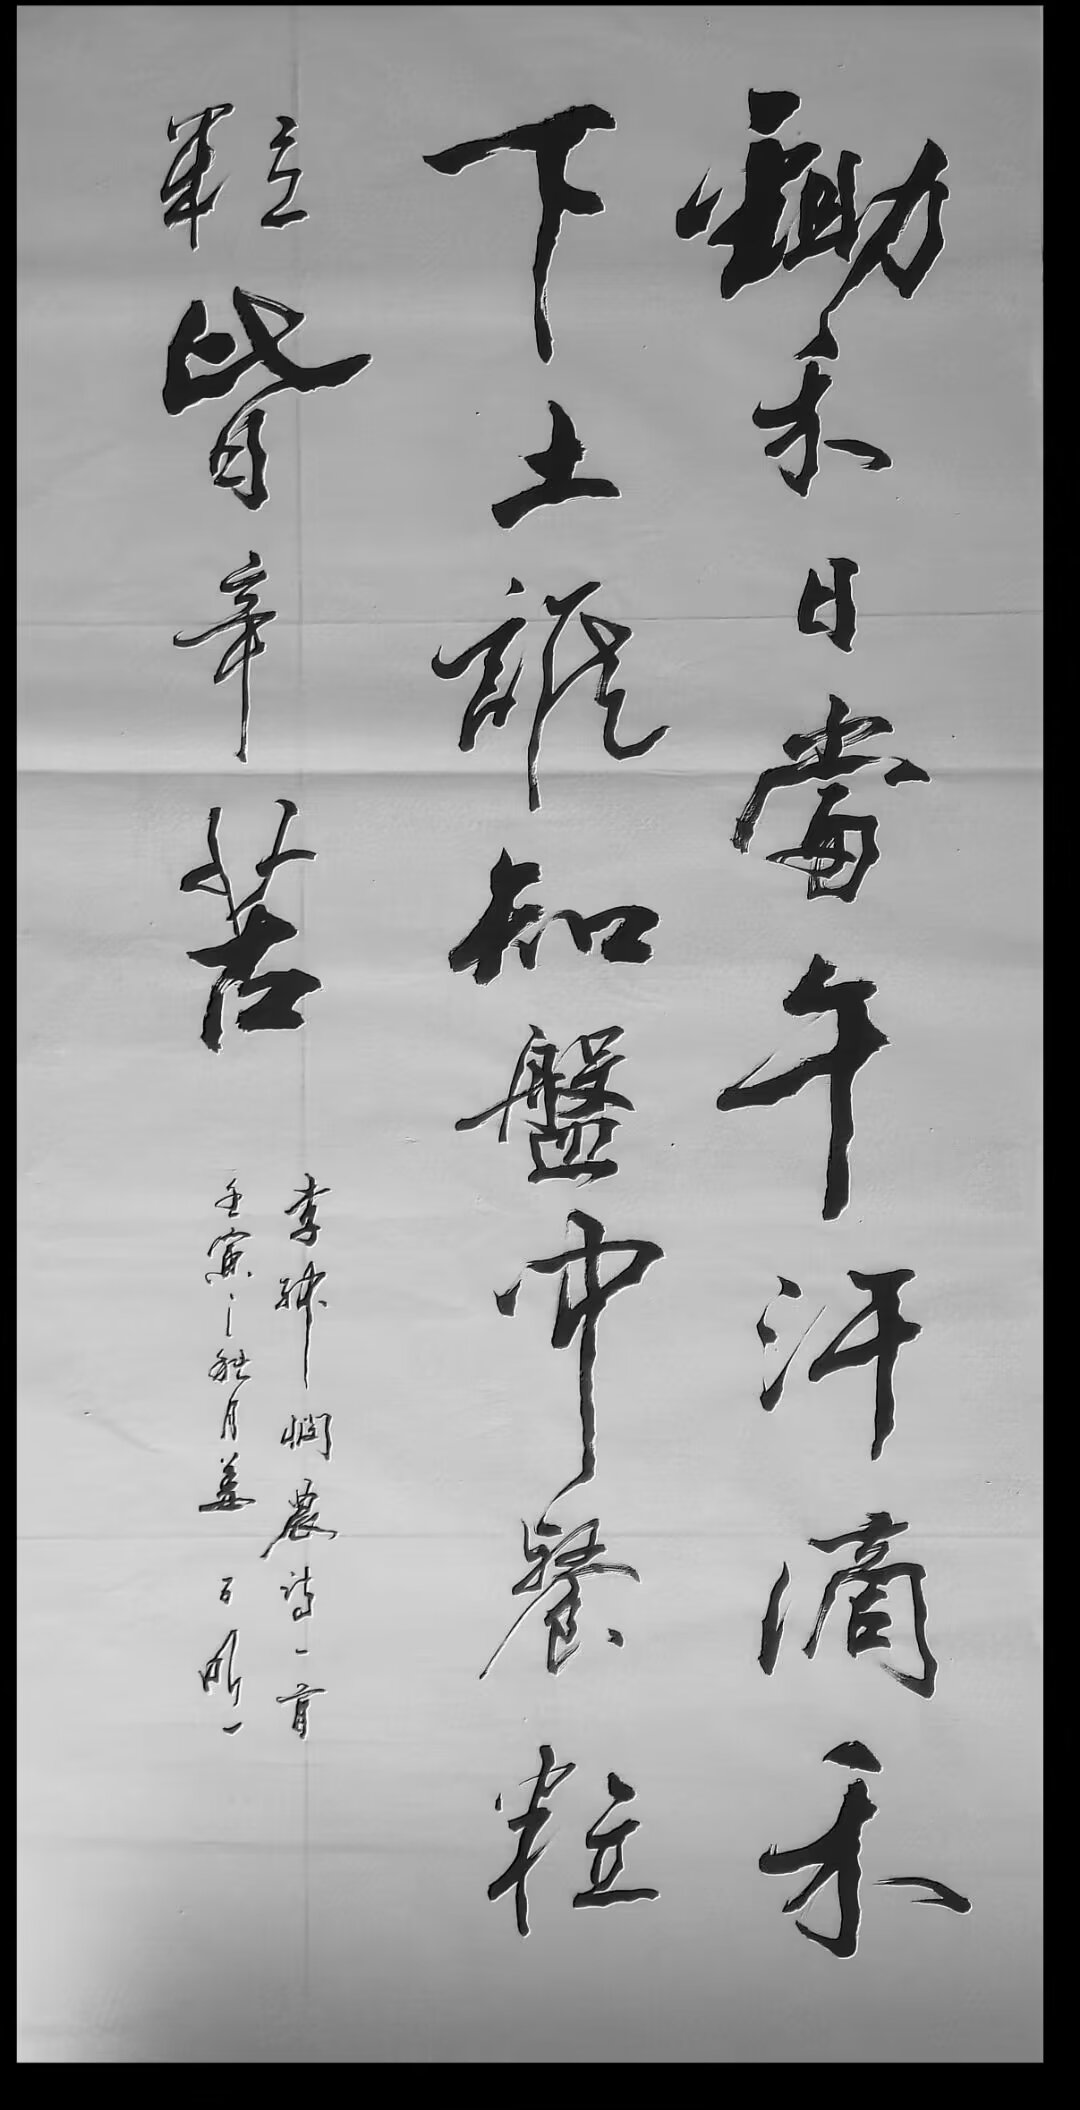 鋤禾日當午汗滴禾
下土誰知盤中餐粒
粒皆辛苦
李紳憫農詩一首
壬寅之秋月姜百明一